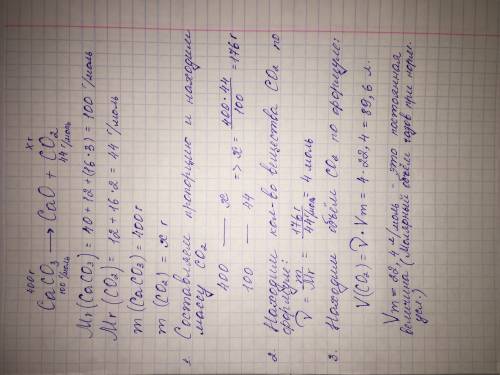 400г хг
CaCO₃ → CaO + CO₂
100 г/моль 44 г/моль
Mr (CaCO₃) = 40 + 12 + (16·3) = 100 г/моль
Mr (CO₂) = 12 + 16·2 = 44 г/моль
m (CaCO₃) = 400 г
m (CO₂) = x г
1. Составляем пропорцию и находим
массу CO₂
400 — x => x = 400·44 / 100 = 176 г
100 — 44
2. Находим кол-во вещества CO₂ по
формуле:
ν = m / Mr = 176г / 44г/моль = 4 моль
3. Находим объём CO₂ по формуле:
V(CO₂) = ν · Vm = 4 · 22,4 = 89,6 л.
Vm = 22,4 л/моль - это постоянная
величина (Молярный объём газов при норм.
усл.)